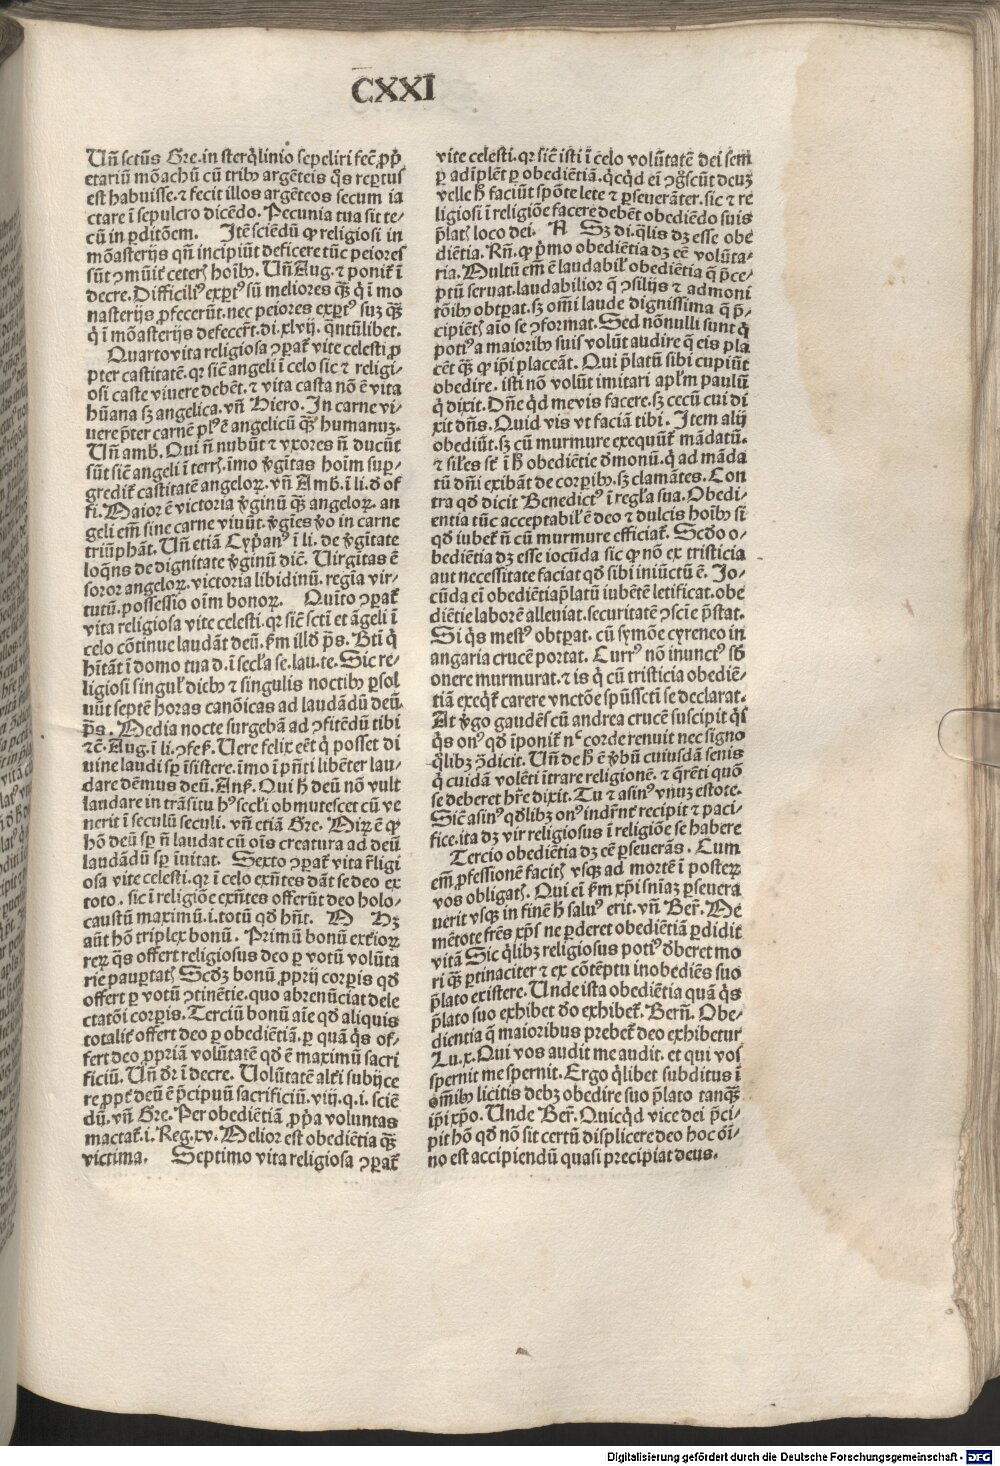 CXXI
Vñ sctūs Gre. in sterq̄linio sepeliri fec̄ ꝓp̄
etariū mōachū cū tribꝰ argēteis q̄s reptus
est habuisse. ⁊ fecit illos argēteos secum ia
ctare ī sepulcro dicēdo. Pecunia tua sit te-
cū in ꝑditōem. Itē sciēdū ꝙ religiosi in
mōasterijs qñ incipiūt deficere tūc peiores
sūt ꝯmūit̄ ceteris hoībꝰ. Vñ Aug. ⁊ ponit̄ ī
decre. Difficiliꝰ exꝑtꝰ sū meliores qꝫ q̄ ī mo
nasterijs ꝓfecerūt. nec peiores exꝑtꝰ suꝫ qꝫ
q̄ ī mōasterijs defecert̄. di. xlvij. qn̄tūlibet.
Quarto vita religiosa ꝯꝑat̄ vite celesti ꝓ
pter castitatē. qr sic̄ angeli ī celo sic ⁊ religi-
osi caste viuere debēt. ⁊ vita casta nō ē vita
hūana sꝫ angelica. vñ Hiero. In carne vi-
uere p̄ter carnē plꝰ ē angelicū qꝫ humanuꝫ.
Vñ amb. Qui ñ nubūt ⁊ vxores ñ ducūt
sūt sic̄ angeli ī terris. īmo v̄gītas hoīm suꝑ-
gredit̄ castitatē angeloꝝ. vñ Amb. ī li. d̄ of
fi. Maior ē victoria v̄ginū qꝫ angeloꝝ. an
geli em̄ sine carne viuūt. v̄gīes v̄o in carne
triūphāt. Vñ etiā Cyp̄anꝰ ī li. de v̄gītate
loq̄ns de dignitate v̄ginū dic̄. Virgītas ē
soror angeloꝝ. victoria libidinū. regīa vir-
tutū. possessio oīm bonoꝝ. Quīto ꝯꝑat̄
vita religiosa vite celesti. qr sic̄ sctī et āgeli ī
celo cōtinue laudāt deū. ẜm illd̄ ps̄. Bti q̄
hītāt ī domo tua d. ī secła se. lau. te. Sic re-
ligiosi singuł diebꝰ ⁊ singulis noctibꝰ ꝑsol
uūt septē horas canōicas ad laudādū deū.
ps̄. Media nocte surgebā ad ꝯfitēdū tibi
⁊c̄. Aug. ī li. ꝯfes̄. Vere felix eēt q̄ posset di
uine laudi sꝑ īsistere. īmo ī pn̄ti libēter lau-
dare dēmus deū. Ans̄. Qui h̄ deū nō vult
laudare in trāsitu hꝰ secłi obmutescet cū ve
nerit ī seculū seculi. vñ etiā Gre. Miꝝ ē ꝙ
hō deū sꝑ ñ laudat cū oīs creatura ad deū
laudādū sꝑ īuitat. Sexto ꝯꝑat̄ vita r̄ligi
osa vite celesti. qr ī celo exn̄tes dāt se deo ex
toto. sic ī religiōe exn̄tes offerūt deo holo-
caustū maximū. i. totū qd̄ hn̄t. M Hꝫ
aūt hō triplex bonū. Primū bonū ext̄ioꝝ
reꝝ q̄s offert religiosus deo ꝑ votū volūta
rie pauꝑtatis Scd̄ꝫ bonū ꝓprij corꝑis qd̄
offert ꝑ votū ꝯtinētie. quo abrenūciat dele
ctatōi corꝑis. Terciū bonū aīe qd̄ aliquis
totalit̄ offert deo ꝑ obediētiā. ꝑ quā q̄s of-
fert deo ꝓpriā volūtatē qd̄ ē maximū sacri
ficiū. Vñ dr̄ ī decre. Volūtatē alt̄i subijce
re ꝓpt̄ deū ē p̄cipuū sacrificiū. viij. q. i. sciē
dū. vñ Gre. Per obediētiā ꝓp̄a voluntas
mactat̄. i. Reg. xv. Melior est obediētia qꝫ
victima. Septimo vita religiosa ꝯꝑat̄
vite celesti. qr sic̄ isti ī celo volūtatē dei sem
ꝑ adīplēt ꝑ obediētiā. qcqd̄ eī ꝯgscūt deuꝫ
velle h̄ faciūt spōte lete ⁊ ꝑseuerāter. sic ⁊ re
ligiosi ī religiōe facere debēt obediēdo suis
p̄latis loco dei. A Sꝫ di. q̄lis dꝫ esse obe
diētia. Rñ. ꝙ p̄mo obediētia dꝫ eē volūta-
ria. Multū em̄ ē laudabił obediētia q̄ p̄ce-
ptū seruat. laudabilior q̄ ꝯsilijs ⁊ admoni
tōibꝰ obtꝑat. sꝫ om̄i laude dignissima q̄ p̄-
cipiētis aīo se ꝯformat. Sed nōnulli sunt q̄
potiꝰ a maioribꝰ suis volūt audire q̄ eis pla
cēt qꝫ q̄ ip̄i placeāt. Qui p̄latū sibi cupiūt
obedire. isti nō volūt imitari apłm paulū
q̄ dixit. Dn̄e qd̄ me vis facere. sꝫ cecū cui di
xit dn̄s. Quid vis vt faciā tibi. Item alij
obediūt. sꝫ cū murmure exequūt̄ mādatū.
⁊ siłes st̄ ī h̄ obediētie d̄monū. q̄ ad māda
tū dn̄i exibāt de corꝑibꝰ. sꝫ clamātes. Con
tra qd̄ dicit Benedictꝰ ī regła sua. Obedi-
entia tūc acceptabił ē deo ⁊ dulcis hoībꝰ si
qd̄ iubet̄ ñ cū murmure efficiat̄. Scd̄o o-
bediētia dꝫ esse iocūda sic ꝙ nō ex tristicia
aut necessitate faciat qd̄ sibi iniūctū ē. Jo-
cūda eī obediētia p̄latū iubētē letificat. obe
diētie laborē alleuiat. securitatē ꝯscīe p̄stat.
Si q̄s mestꝰ obtꝑat. cū symōe cyreneo in
angaria crucē portat. Currꝰ nō inunctꝰ sb̄
onere murmurat. ⁊ is q̄ cū tristicia obediē-
tiā exeqt̄ carere vnctōe spūssctī se declarat.
At v̄go gaudēs cū andrea crucē suscipit q̄si
q̄s onꝰ qd̄ īponit̄ nͨ corde renuit nec signo
q̄libꝫ ꝯdicit. Vñ de h̄ ē v̄bū cuiusdā senis
q̄ cuidā volēti ītrare religionē. ⁊ q̄rēti quō
se deberet hr̄e dixit. Tu ⁊ asinꝰ vnuꝫ estote.
Sic̄ asinꝰ qd̄libꝫ onꝰ indr̄nt̄ recipit ⁊ paci-
fice. ita dꝫ vir religiosus ī religiōe se habere
Tercio obediētia dꝫ eē ꝑseuerās. Cum
em̄ ꝓfessionē facitis vsqꝫ ad mortē ī posteꝝ
vos obligatis. Qui eī ẜm xp̄i sn̄iaꝫ ꝑseuera
uerit vsqꝫ in finē h̄ saluꝰ erit. vñ Ber̄. Me
mētote fr̄es xp̄s ne ꝑderet obediētiā ꝑdidit
vitā Sic q̄libꝫ religiosus potiꝰ d̄beret mo
ri qꝫ ꝑtinaciter ⁊ ex cōtēptu inobediēs suo
p̄lato existere. Unde ista obediētia quā q̄s
p̄lato suo exhibet d̄o exhibet̄. Berñ. Obe-
dientia q̄ maioribus prebet̄ deo exhibetur
Lu. x. Qui vos audit me audit. et qui vos
spernit me spernit. Ergo q̄libet subditus ī
om̄ibꝰ licitis debꝫ obedire suo p̄lato tanqꝫ
ip̄i xp̄o. Unde Ber̄. Quicqd̄ vice dei p̄ci-
pit hō qd̄ nō sit certū displicere deo hoc oī-
no est accipiendū quasi precipiat deus.
Digitalisierung gefördert durch die Deutsche Forschungsgemeinschaft - DFG